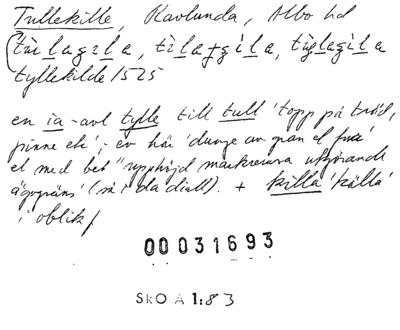 Tullekille, Ravlunda, Albo hd
tùlagɛla, tìlagɛ̀la, tìglagìla
tyllekilde 1525
en ia-avl tylle till tull 'topp på träd,
pinne etc'; ev här 'dunge av gran el
el med bet "upphöjd markremsa utgörande
ägogräns' (så i da diall). + killa 'källa'
i oblik f
00031693
SkO A 1:83